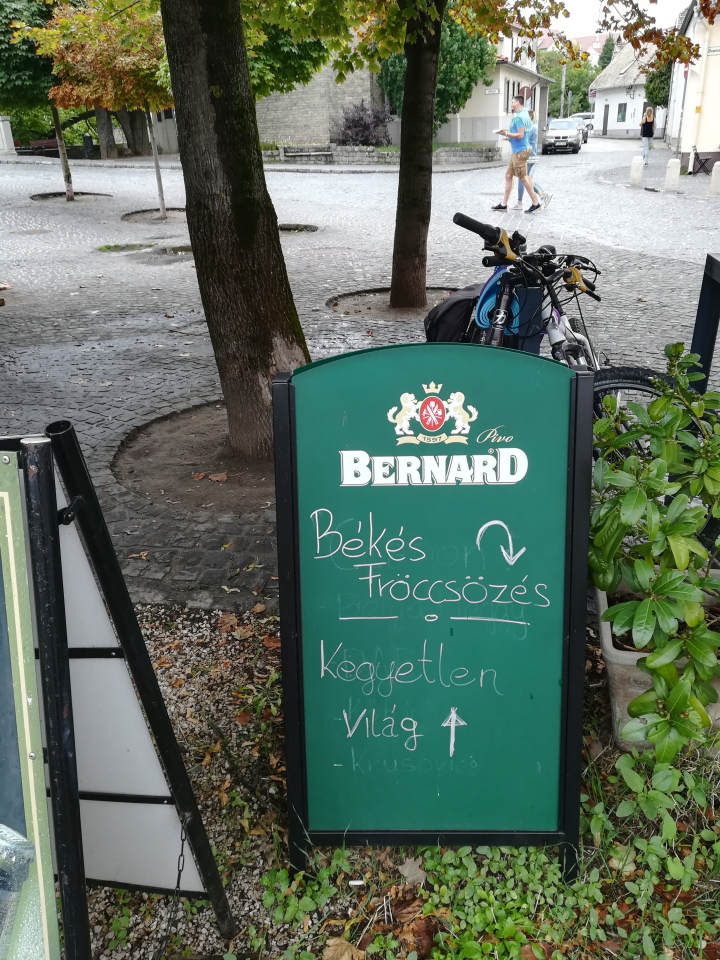 1597
Pivo
BERNARD
Békés
Fröccsözés
Kegyetlen
Világ